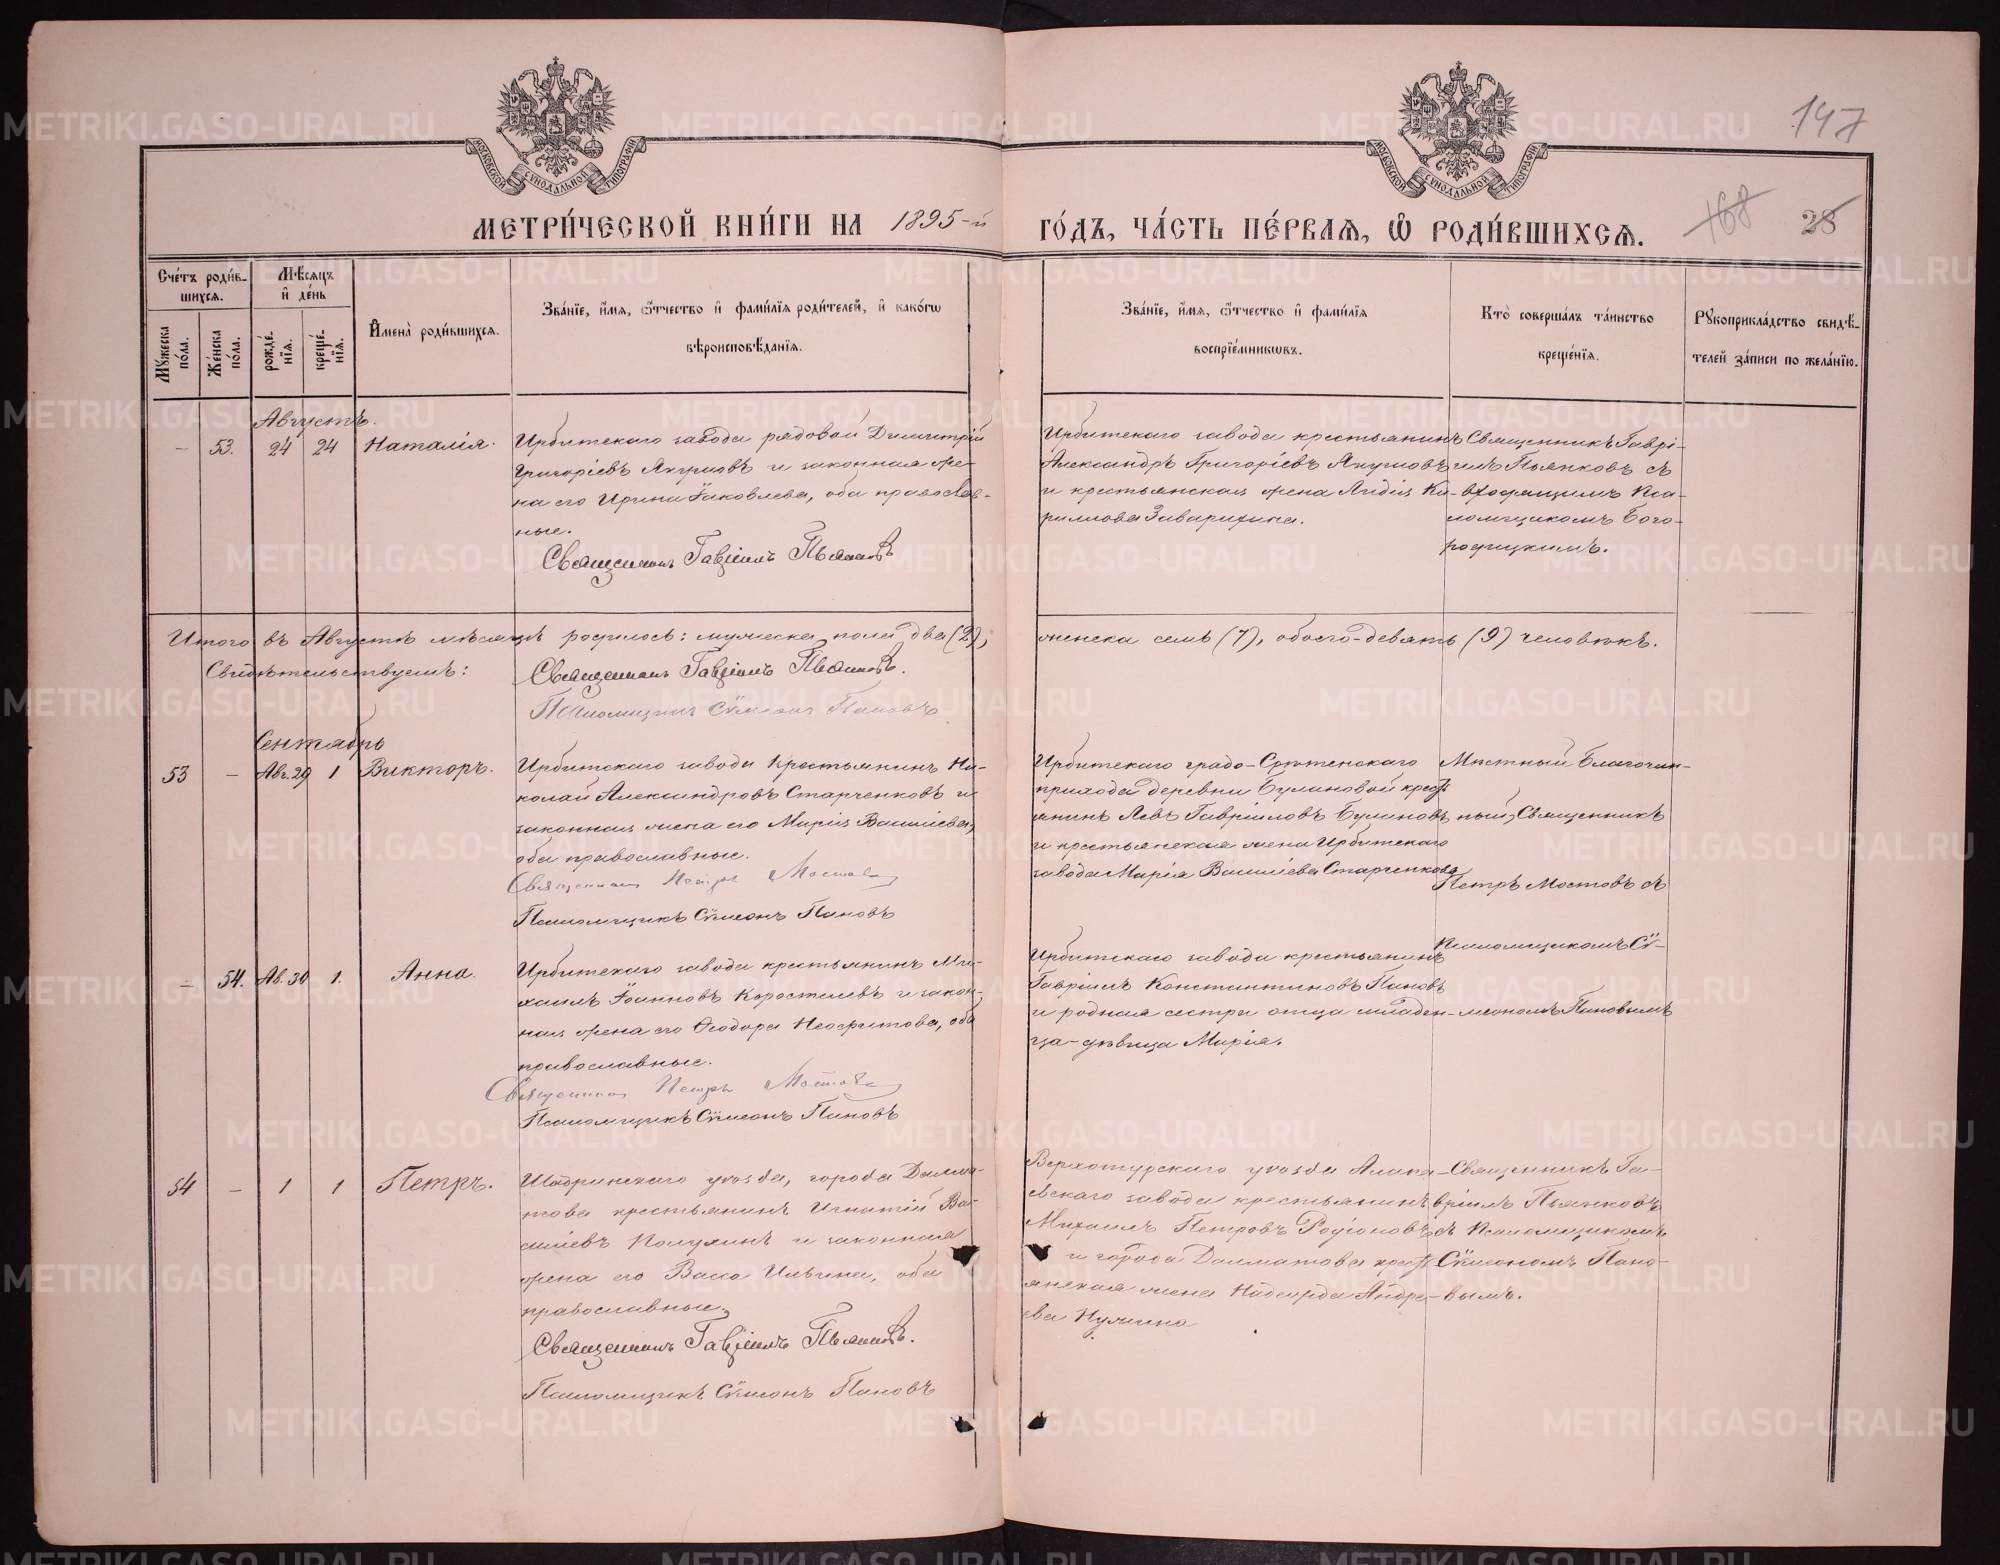 147
МЕТРИ́ЧЕСКОЙ КНИ́ГИ НА 1895-й ГО́ДЪ, ЧА́СТЬ ПЕ́РВАЯ, Ѡ РОДИ́ВШИХСЯ.
168 28
МОСКОВСКОЙ СѴНОДАЛЬНОЙ ТИПОГРАФІИ
МОСКОВСКОЙ СѴНОДАЛЬНОЙ ТИПОГРАФІИ
Сче́тъ роди́в-
шихся.
Му́жеска по́ла.
Же́нска по́ла.
Мѣ́сяцъ
и де́нь
рожде́нїя.
креще́нїя.
Имена̀ роди́вшихся.
Зва́нїе, и́мя, ѻ́тчество и фами́лїя роди́телей, и како́гѡ
вѣроисповѣ́данїя.
Зва́нїе, и́мя, ѻ́тчество и фами́лїя
воспрїе́мникѡвъ.
Кто̀ соверша́лъ та́инство
креще́нїя.
Рукоприкла́дство свидѣ́-
телей за́писи по жела́нїю.
Августъ.
– 53. 24 24 Наталія.
Ирбитскаго завода рядовой Димитрій
Григоріевъ Якушовъ и законная же-
на его Ирина Іаковлева, оба православ-
ные.
Священникъ Гавріилъ Пьянковъ
Ирбитскаго завода крестьянинъ
Александръ Григоріевъ Якушовъ
и крестьянская жена Лидія Ки-
риллова Заварихина.
Священникъ Гаврі-
илъ Пьянковъ съ
и. д. псаломщика
Бого-
родицкимъ.
Итого въ Августѣ мѣсяцѣ родилось: мужеска пола два (2), женска семь (7), обоего-девять (9) человѣкъ.
Свидѣтельствуемъ:
Священникъ Гавріилъ Пьянковъ.
Псаломщикъ Сѵмеонъ Пановъ
Сентябрь
53 – Авг. 29 1 Викторъ.
Ирбитскаго завода крестьянинъ Ни-
колай Александровъ Старченковъ и
законная жена его Марія Василіева,
оба православные.
Священникъ Петръ Мостовъ
Псаломщикъ Сѵмеонъ Пановъ
Ирбитскаго градо-Срѣтенскаго
прихода деревни Булановой крест-
янинъ Левъ Гавріиловъ Булановъ
и крестьянская жена Ирбитскаго
завода Марія Василіева Старченкова
Мѣстный Благочин-
ный, Священникъ
Петръ Мостовъ съ
псаломщикомъ Сѵ-
меономъ Пановымъ
– 54. Ав. 30 1. Анна.
Ирбитскаго завода крестьянинъ Ми-
хаилъ Іоанновъ Коростелевъ и закон-
ная жена его Ѳеодора Неофитова, оба
православные.
Священникъ Петръ Мостовъ
Псаломщикъ Сѵмеонъ Пановъ
Ирбитскаго завода крестьянинъ
Гавріилъ Константиновъ Пановъ
и родная сестра отца младен-
ца-дѣвица Марія.
54 – 1 1 Петръ.
Шадринскаго уѣзда, города Далма-
това крестьянинъ Игнатій Ва-
силіевъ Полухинъ и законная
жена его Васса Ильина, оба
православные.
Священникъ Гавріилъ Пьянковъ.
Псаломщикъ Сѵмеонъ Пановъ
Верхотурскаго уѣзда Алапа-
евскаго завода крестьянинъ
Михаилъ Петровъ Родіоновъ
и города Далматова крест-
янская жена Надежда Андре-
ева
Священникъ Га-
вріилъ Пьянковъ
съ псаломщикомъ
Сѵмеономъ Пано-
вымъ.
METRIKI.GASO-URAL.RU